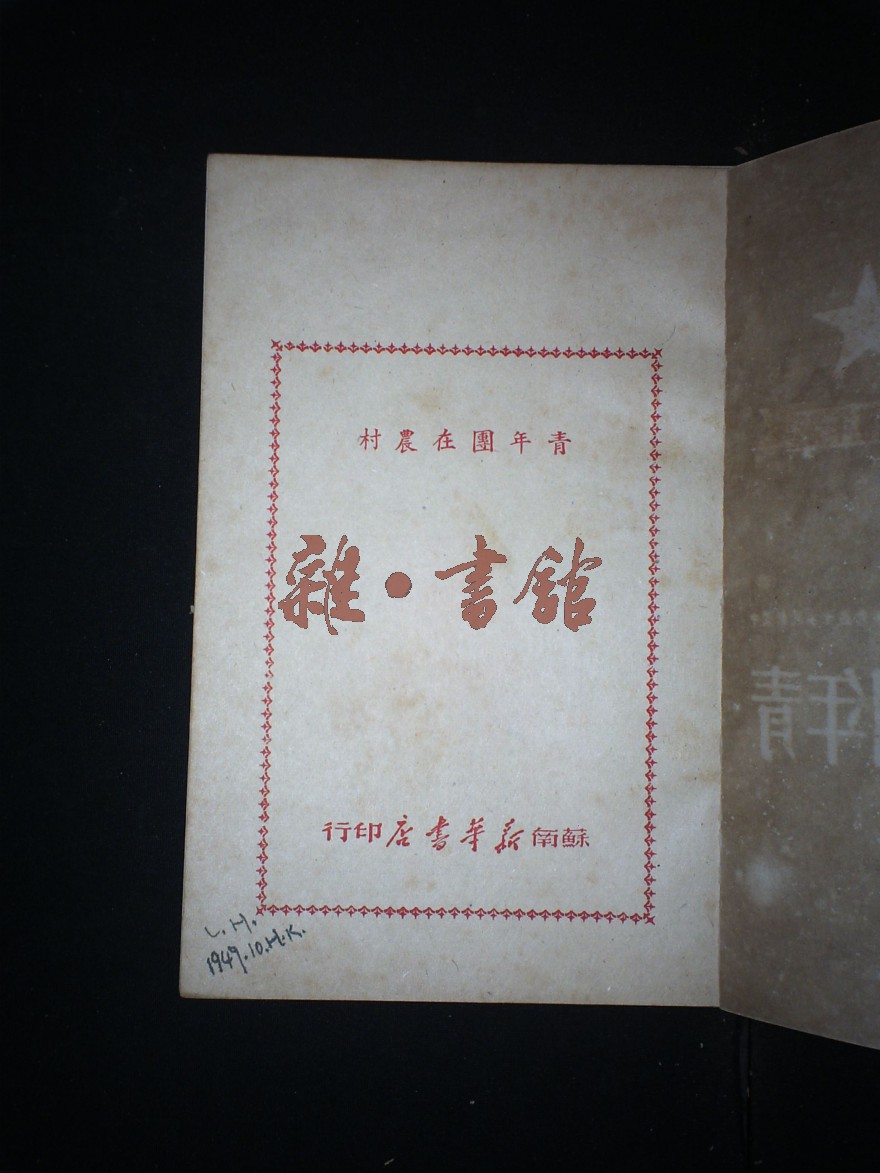 青年團在農村
雜·書館
蘇南新華書店印行
L.H.
1949.10.H.K.
青年